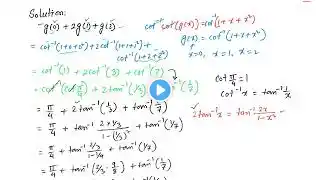 Solution:
g(0) + 2g(1) + g(2)
cot⁻¹ cot(g(x)) = cot⁻¹(1+x+x²)
g(x) = cot⁻¹(1+x+x²)
x=0, x=1, x=2
= cot⁻¹(1+0+0²) + 2cot⁻¹(1+1+1²) + cot⁻¹(1+2+2²)
= cot⁻¹(1) + 2cot⁻¹(3) + cot⁻¹(7)
cot π/4 = 1
cot⁻¹x = tan⁻¹ 1/x
= cot⁻¹(cot π/4) + 2tan⁻¹(1/3) + tan⁻¹(1/7)
= π/4 + 2tan⁻¹(1/3) + tan⁻¹(1/7)
2tan⁻¹x = tan⁻¹ 2x/1-x²
= π/4 + tan⁻¹ 2×1/3/1-(1/3)² + tan⁻¹(1/7)
= π/4 + tan⁻¹ 2/3/1-1/9 + tan⁻¹(1/7)
= π/4 + tan⁻¹(2/3 · 9/8) + tan⁻¹(1/7)